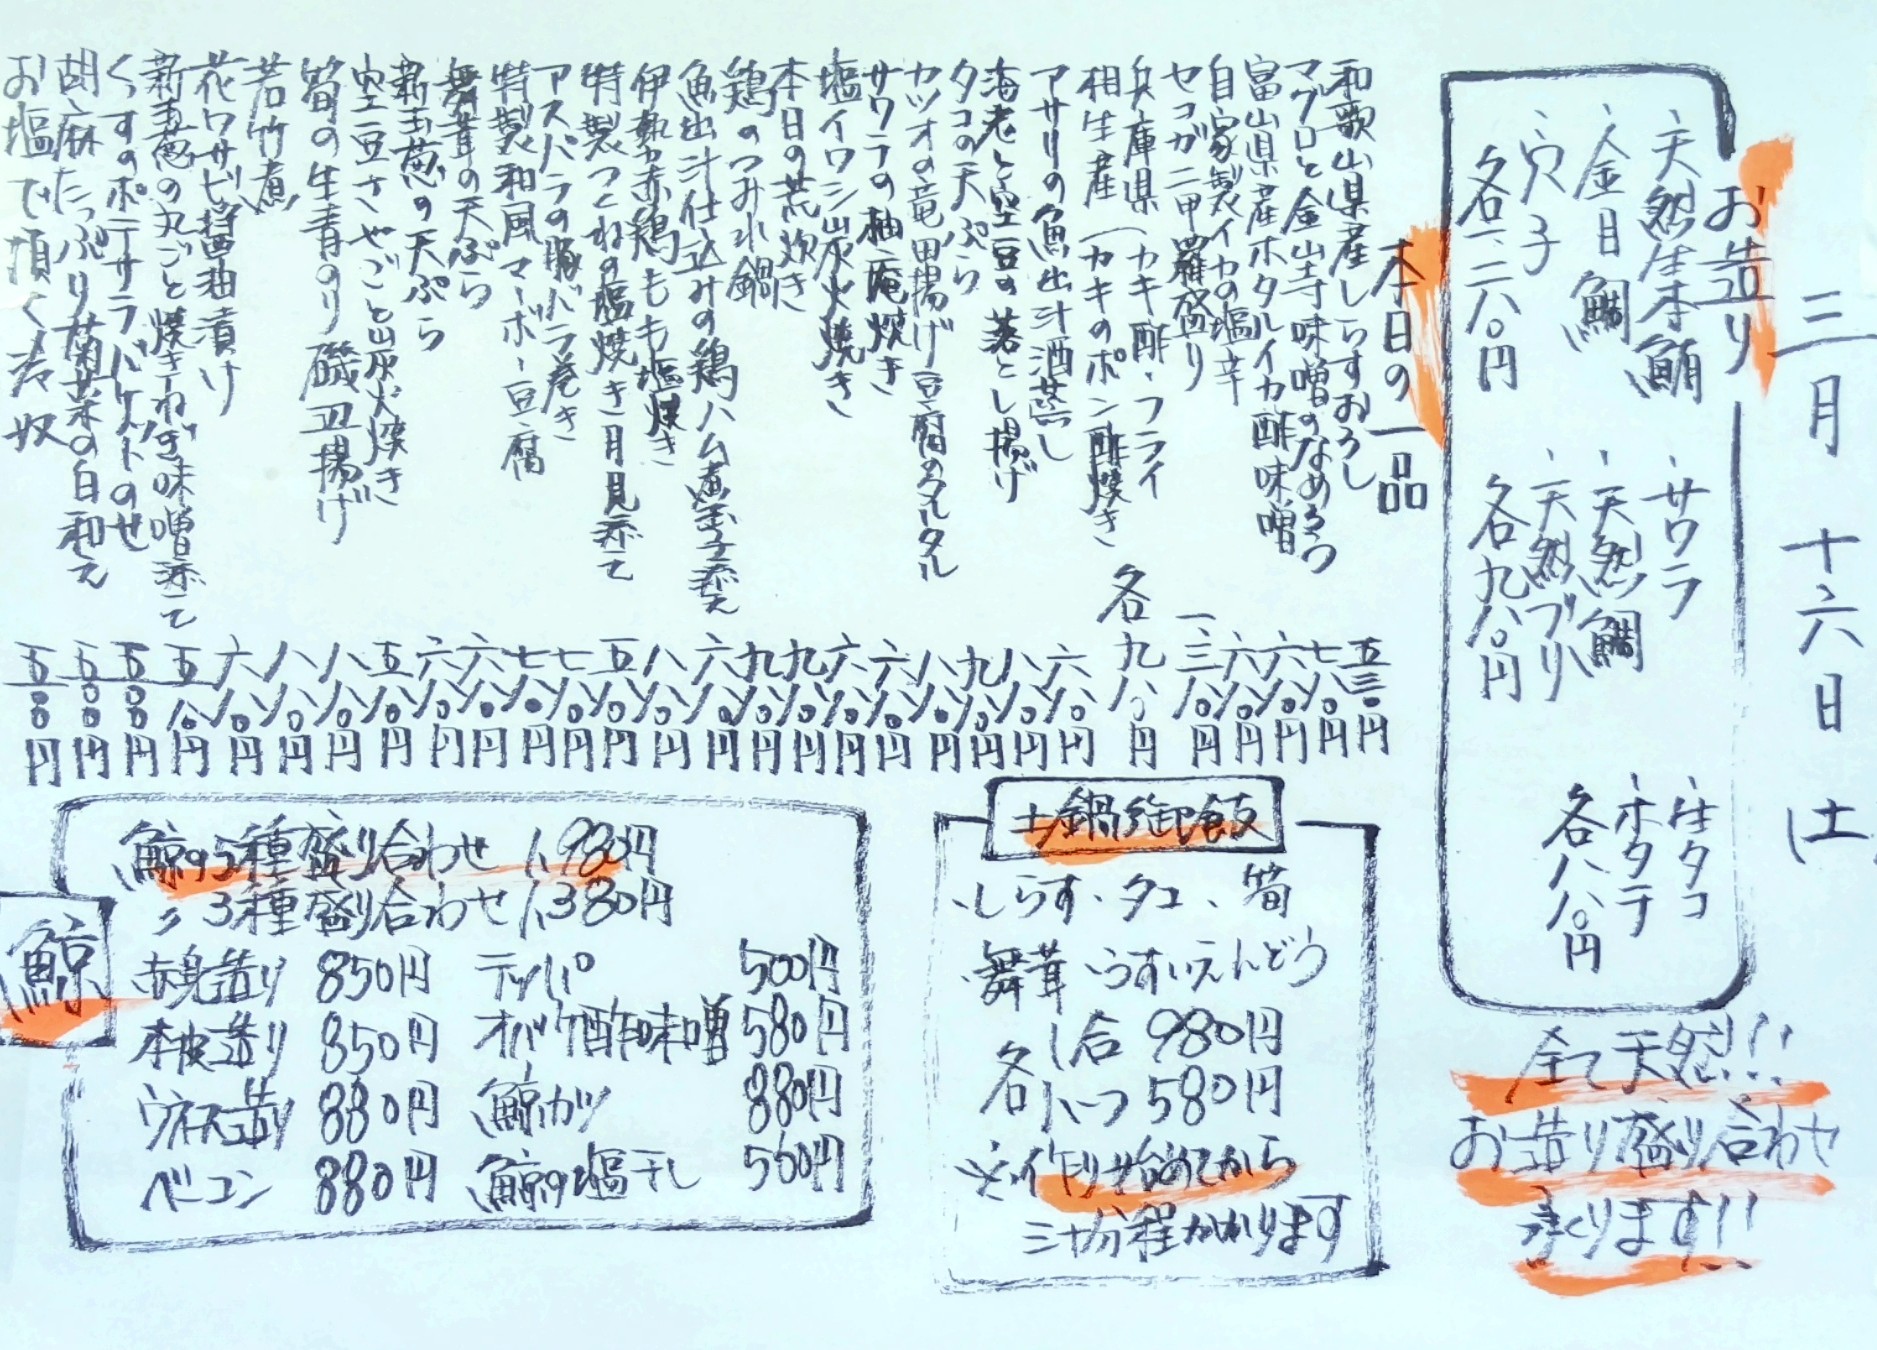 三月十六日(土)
お造り
・天然生本鮪
・金目鯛
・穴子
各一、二八〇円
・サワラ
・天然鯛
・天然ブリ
各九八〇円
・生タコ
・ホタテ
各八八〇円
全て天然!!
お造り盛り合わせ
承ります!!
本日の一品
和歌山県産しらすおろし 五三〇円
マグロと金山寺味噌のなめろう 七八〇円
富山県産ホタルイカ酢味噌 六八〇円
自家製イカの塩辛 六八〇円
セコガニ甲羅盛り 一三八〇円
兵庫県 (カキ酢・フライ
相生産 (カキのポン酢焼き 各九八〇円
アサリの魚出汁酒蒸し 六八〇円
海老と空豆の落とし揚げ 八八〇円
タコの天ぷら 九八〇円
カツオの竜田揚げ豆腐のタルタル 八八〇円
サワラの柚庵焼き 六八〇円
塩イワシ炭火焼き 六八〇円
本日の荒炊き 九八〇円
鶏のつみれ鍋 九八〇円
魚出汁仕込みの鶏ハム煮玉子添え 六八〇円
伊勢赤鶏もも塩焼き 八八〇円
特製つくねの塩焼き月見添て 五八〇円
アスパラの豚バラ巻き 七八〇円
特製和風マーボー豆腐 七八〇円
舞茸の天ぷら 六八〇円
新玉葱の天ぷら 六八〇円
空豆さやごと炭火焼き 五八〇円
筍の生青のり磯辺揚げ 八八〇円
若竹煮 八八〇円
花ワサビ醤油漬け 六八〇円
新玉葱の丸ごと焼きねぎ味噌添て 五八〇円
くっすのポテサラバケットのせ 五〇〇円
胡麻たっぷり菊菜の白和え 五〇〇円
お塩で頂く考奴 五〇〇円
土鍋御飯
・しらす・タコ・筍
・舞茸・うすいえんどう
各 1合 980円
小いつ 580円
※作り始めてから
三十分程かかります
鯨
鯨の5種盛り合わせ 1,980円
〃 3種盛り合わせ 1,380円
赤身造り 850円 テッパ 500円
本皮造り 850円 オバケ酢味噌 580円
ウネス造り 880円 鯨カツ 880円
ベーコン 880円 鯨の塩干し 560円